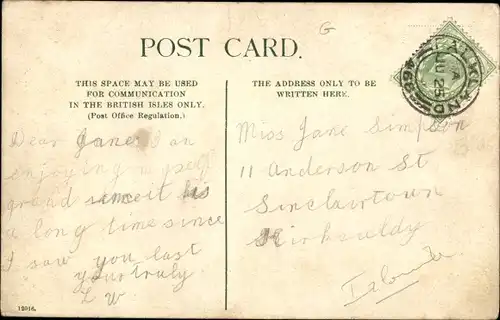 G
POST CARD.
THIS SPACE MAY BE USED
FOR COMMUNICATION
IN THE BRITISH ISLES ONLY.
(Post Office Regulation.)
THE ADDRESS ONLY TO BE
WRITTEN HERE.
FALKLAND
A
JU 25
468
Dear Jane I am
enjoying myself
grand it is
a long time since
I saw you last
yours truly
L W
Miss Jane Simpson
11 Anderson St
Sinclairtown
Kirkcaldy
12016.